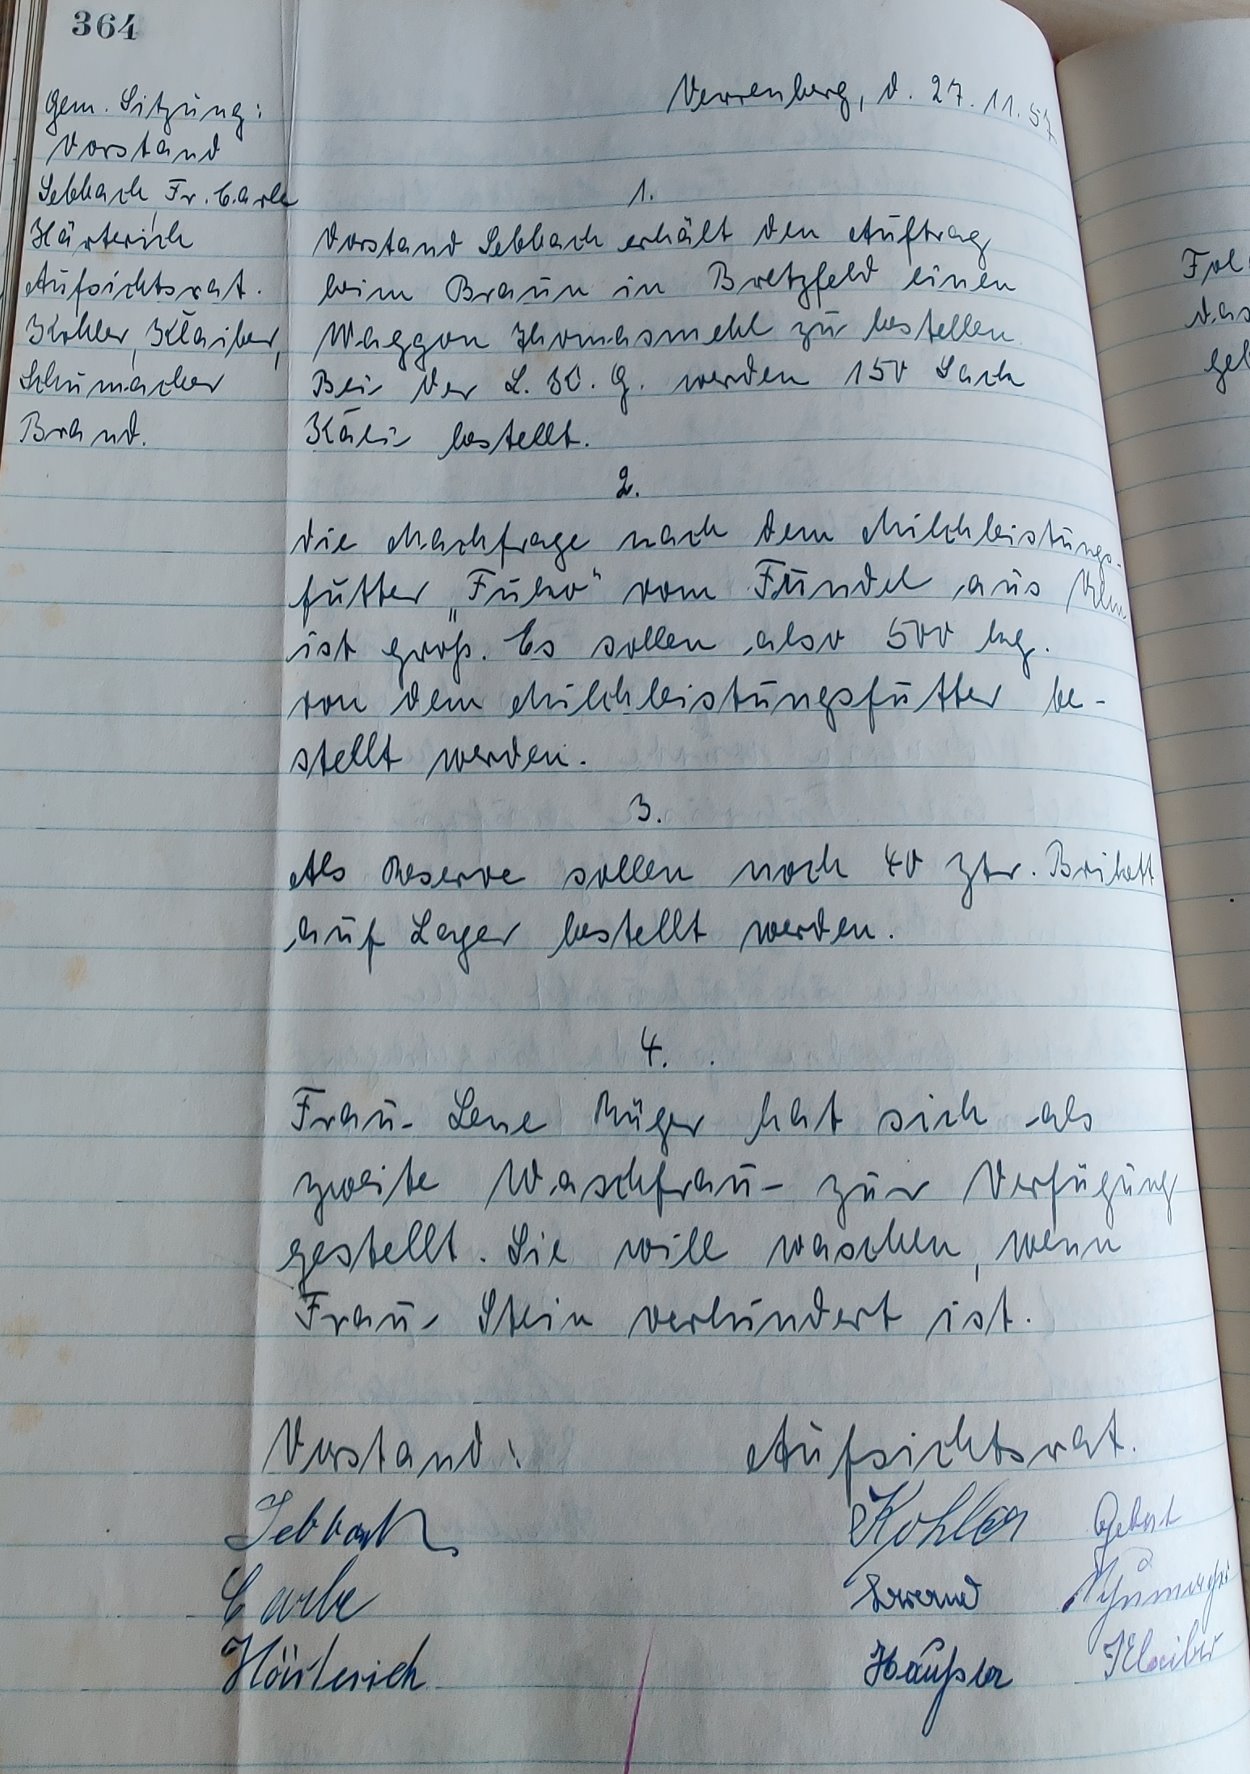 364
Verrenberg, d. 27.11.57
Gem. Sitzung:
Vorstand
Sebbach, Fr. Carle
Härterich
Aufsichtsrat.
Kohler, Klaiber,
Schumacher
Brand.
1.
Vorstand Sebbach erhält den Auftrag
beim Braun in Bretzfeld einen
Waggon Thomasmehl zu bestellen
Bei der L. Z. G. werden 150 Sack
Kali bestellt.
2.
Die Nachfrage nach dem Milchleistungs-
futter „Fuko“ vom Fundel aus Ulm
ist groß. Es sollen also 500 kg.
von dem Milchleistungsfutter be-
stellt werden.
3.
Als Reserve sollen noch 40 Ztr. Brikett
auf Lager bestellt werden.
4.
Frau Lene Rüger hat sich als
zweite Waschfrau zur Verfügung
gestellt. Sie will waschen, wenn
Frau Stein verhindert ist.
Vorstand: Aufsichtsrat.
Sebbach Kohler
Carle Brand
Härterich Häußler Klaiber